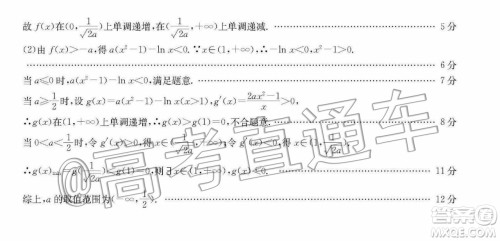 故 f(x)在(0, 1/√(2a))上单调递增,在(1/√(2a),+∞)上单调递减. 5 分
(2)由 f(x)>-a,得 a(x²-1)-ln x<0. ∵x∈(1,+∞),∴-ln x<0,x²-1>0.
6 分
当 a≤0 时,a(x²-1)-ln x<0,满足题意. 7 分
当 a≥1/2 时,设 g(x)=a(x²-1)-ln x(x>1),g′(x)=(2ax²-1)/x>0,
∴g(x)在(1,+∞)上单调递增,∴g(x)>g(1)=0,不合题意. 8 分
当 0<a<1/2 时,令 g′(x)>0,得 x∈(1/√(2a),+∞),令 g′(x)<0,得 x∈(1,1/√(2a)),
∴g(x) =g(1/√(2a))<g(1)=0,则∃x∈(1,+∞),g(x)<0. 11 分
综上,a 的取值范围为(-∞,1/2). 12 分
@高考直通车
答案圈